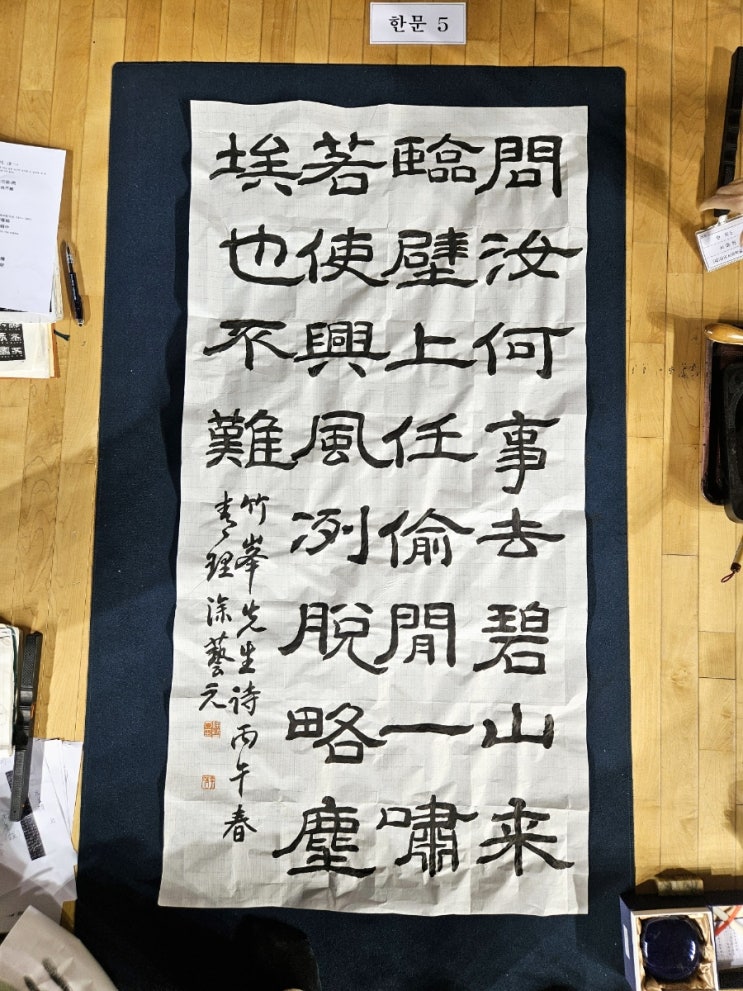 한문 5
問汝何事去碧山来
臨壁上任偷閒一嘯
若使興風冽脫略塵
埃也不難
竹峯先生诗丙午春
青理涂藝元